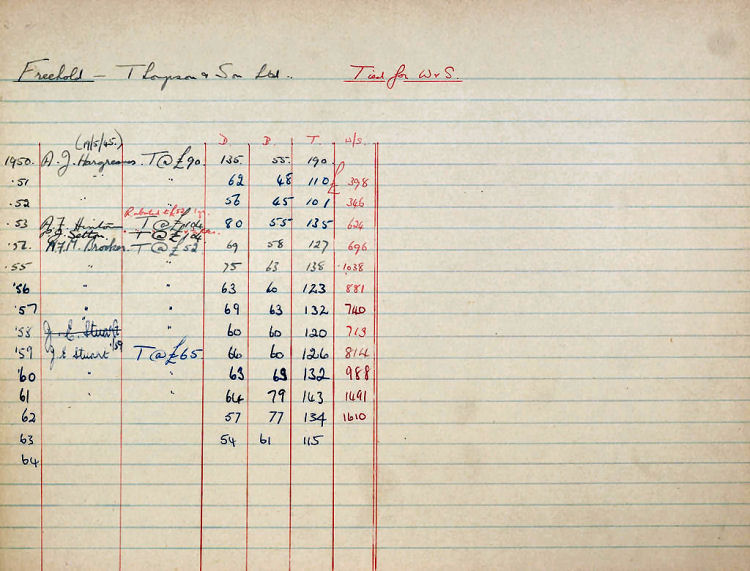 Freehold – Thompson & Son Ltd.. Tied for W & S.
(17/5/45.) D. B. T. W/S.
1950. A. J. Hargreaves. T @ £90. 135. 55. 190.
·51 " " 62 48 110 £ 398
·52 " 56 45 101 346
·53 A. F. Hinton T @ 80 55 135 624
J. Setton T @
W. F. M. Brooker. T @ £52 69 58 127 696
·55 " " 75 63 138 1038
'56 " " 63 60 123 881
·57 " " 69 63 132 740
'58 J. E. Stuart " 60 60 120 713
'59 J E Stuart 1/59 T @ £65 66 60 126 814
'60 " " 63 69 132 988
61 " " 64 79 143 1491
62 57 77 134 1610
63 54 61 115
64